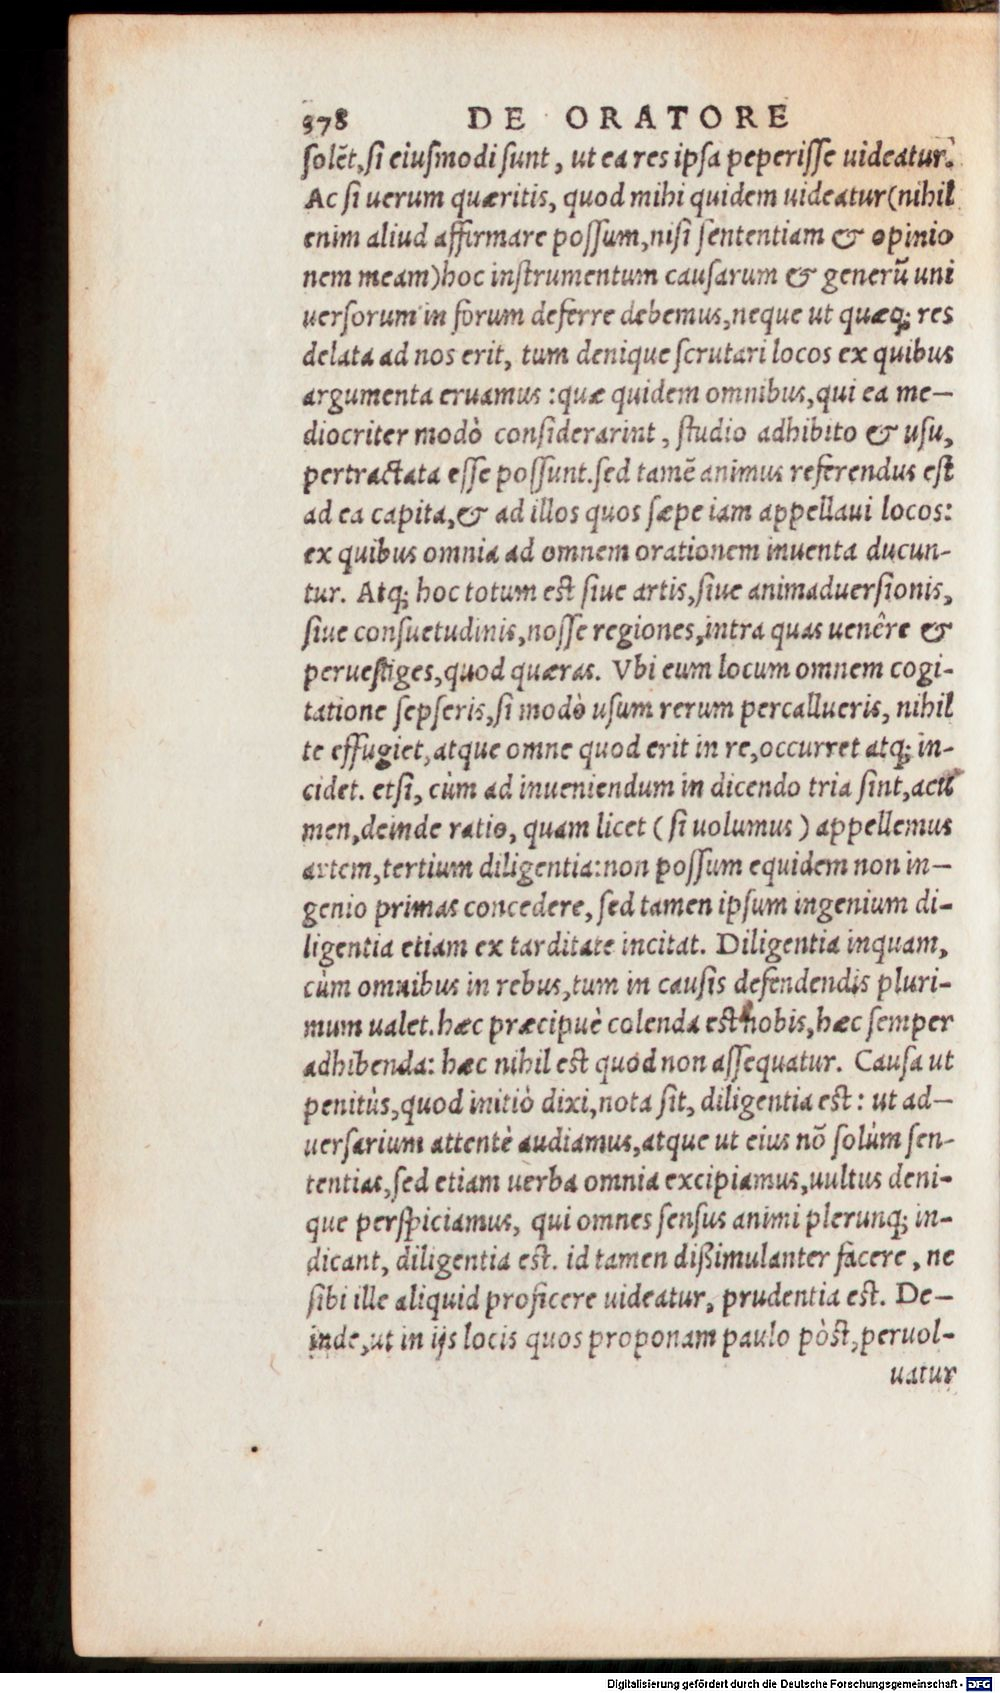 378 DE ORATORE
ſolēt, ſi eiuſmodi ſunt, ut ea res ipſa peperiſſe uideatur.
Ac ſi uerum quæritis, quod mihi quidem uideatur (nihil
enim aliud affirmare poſſum, niſi ſententiam & opinio
nem meam) hoc inſtrumentum cauſarum & generū uni
uerſorum in forum deferre debemus, neque ut quæq; res
delata ad nos erit, tum denique ſcrutari locos ex quibus
argumenta eruamus: quæ quidem omnibus, qui ea me-
diocriter modò conſiderarint, ſtudio adhibito & uſu,
pertractata eſſe poſſunt. ſed tamē animus referendus eſt
ad ea capita, & ad illos quos ſæpe iam appellaui locos:
ex quibus omnia ad omnem orationem inuenta ducun-
tur. Atq; hoc totum eſt ſiue artis, ſiue animaduerſionis,
ſiue conſuetudinis, noſſe regiones, intra quas uenêre &
perueſtiges, quod quæras. Vbi eum locum omnem cogi-
tatione ſepſeris, ſi modò uſum rerum percallueris, nihil
te effugiet, atque omne quod erit in re, occurret atq; in-
cidet. etſi, cùm ad inueniendum in dicendo tria ſint, acu
men, deinde ratio, quam licet (ſi uolumus) appellemus
artem, tertium diligentia: non poſſum equidem non in-
genio primas concedere, ſed tamen ipſum ingenium di-
ligentia etiam ex tarditate incitat. Diligentia inquam,
cùm omnibus in rebus, tum in cauſis defendendis pluri-
mum ualet. hæc præcipuè colenda eſt nobis, hæc ſemper
adhibenda: hæc nihil eſt quod non aſſequatur. Cauſa ut
penitùs, quod initiò dixi, nota ſit, diligentia eſt: ut ad-
uerſarium attentè audiamus, atque ut eius nō ſolùm ſen-
tentias, ſed etiam uerba omnia excipiamus, uultus deni-
que perſpiciamus, qui omnes ſenſus animi plerunq; in-
dicant, diligentia eſt. id tamen dißimulanter facere, ne
ſibi ille aliquid proficere uideatur, prudentia eſt. De-
inde, ut in ijs locis quos proponam paulo pòſt, peruol-
uatur
Digitalisierung gefördert durch die Deutsche Forschungsgemeinschaft - DFG